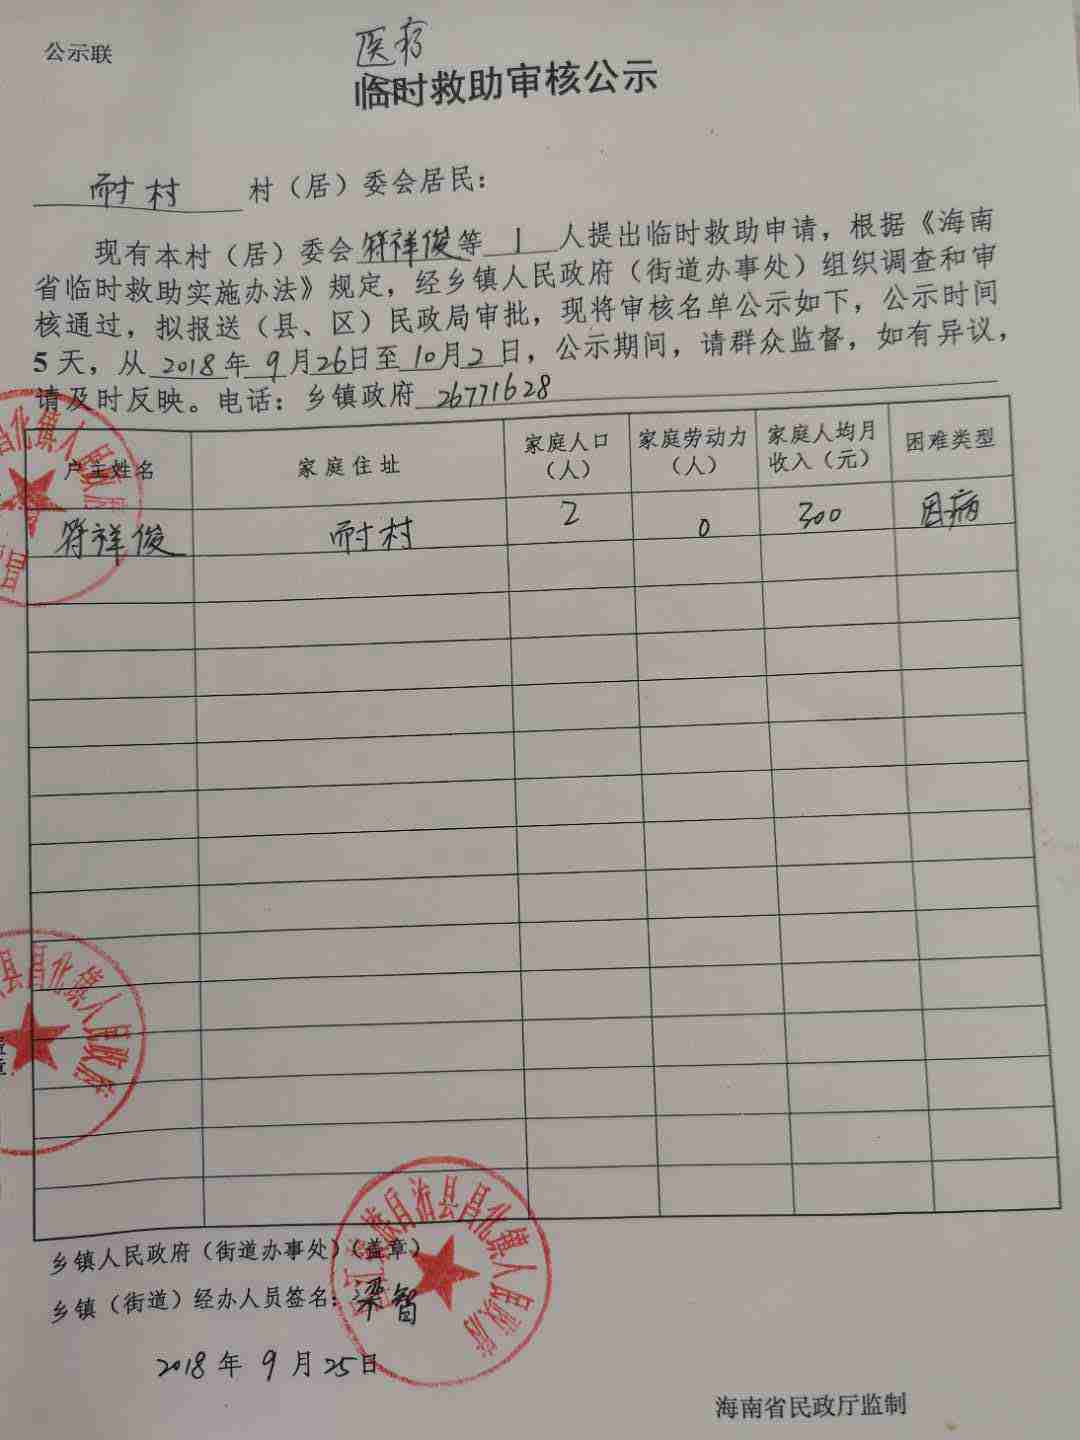 公示联
医疗
临时救助审核公示
耐村 村（居）委会居民：
现有本村（居）委会符祥俊等 1 人提出临时救助申请，根据《海南
省临时救助实施办法》规定，经乡镇人民政府（街道办事处）组织调查和审
核通过，拟报送（县、区）民政局审批，现将审核名单公示如下，公示时间
5 天，从 2018 年 9 月 26 日至 10 月 2 日，公示期间，请群众监督，如有异议，
请及时反映。电话：乡镇政府 26771628
户主姓名 家庭住址 家庭人口（人） 家庭劳动力（人） 家庭人均月收入（元） 困难类型
符祥俊 耐村 2 0 300 因病
县昌化镇人民政府
乡镇人民政府（街道办事处）（盖章）
乡镇（街道）经办人员签名：梁智
江黎族自治县昌化镇人民政府
2018 年 9 月 25 日
海南省民政厅监制